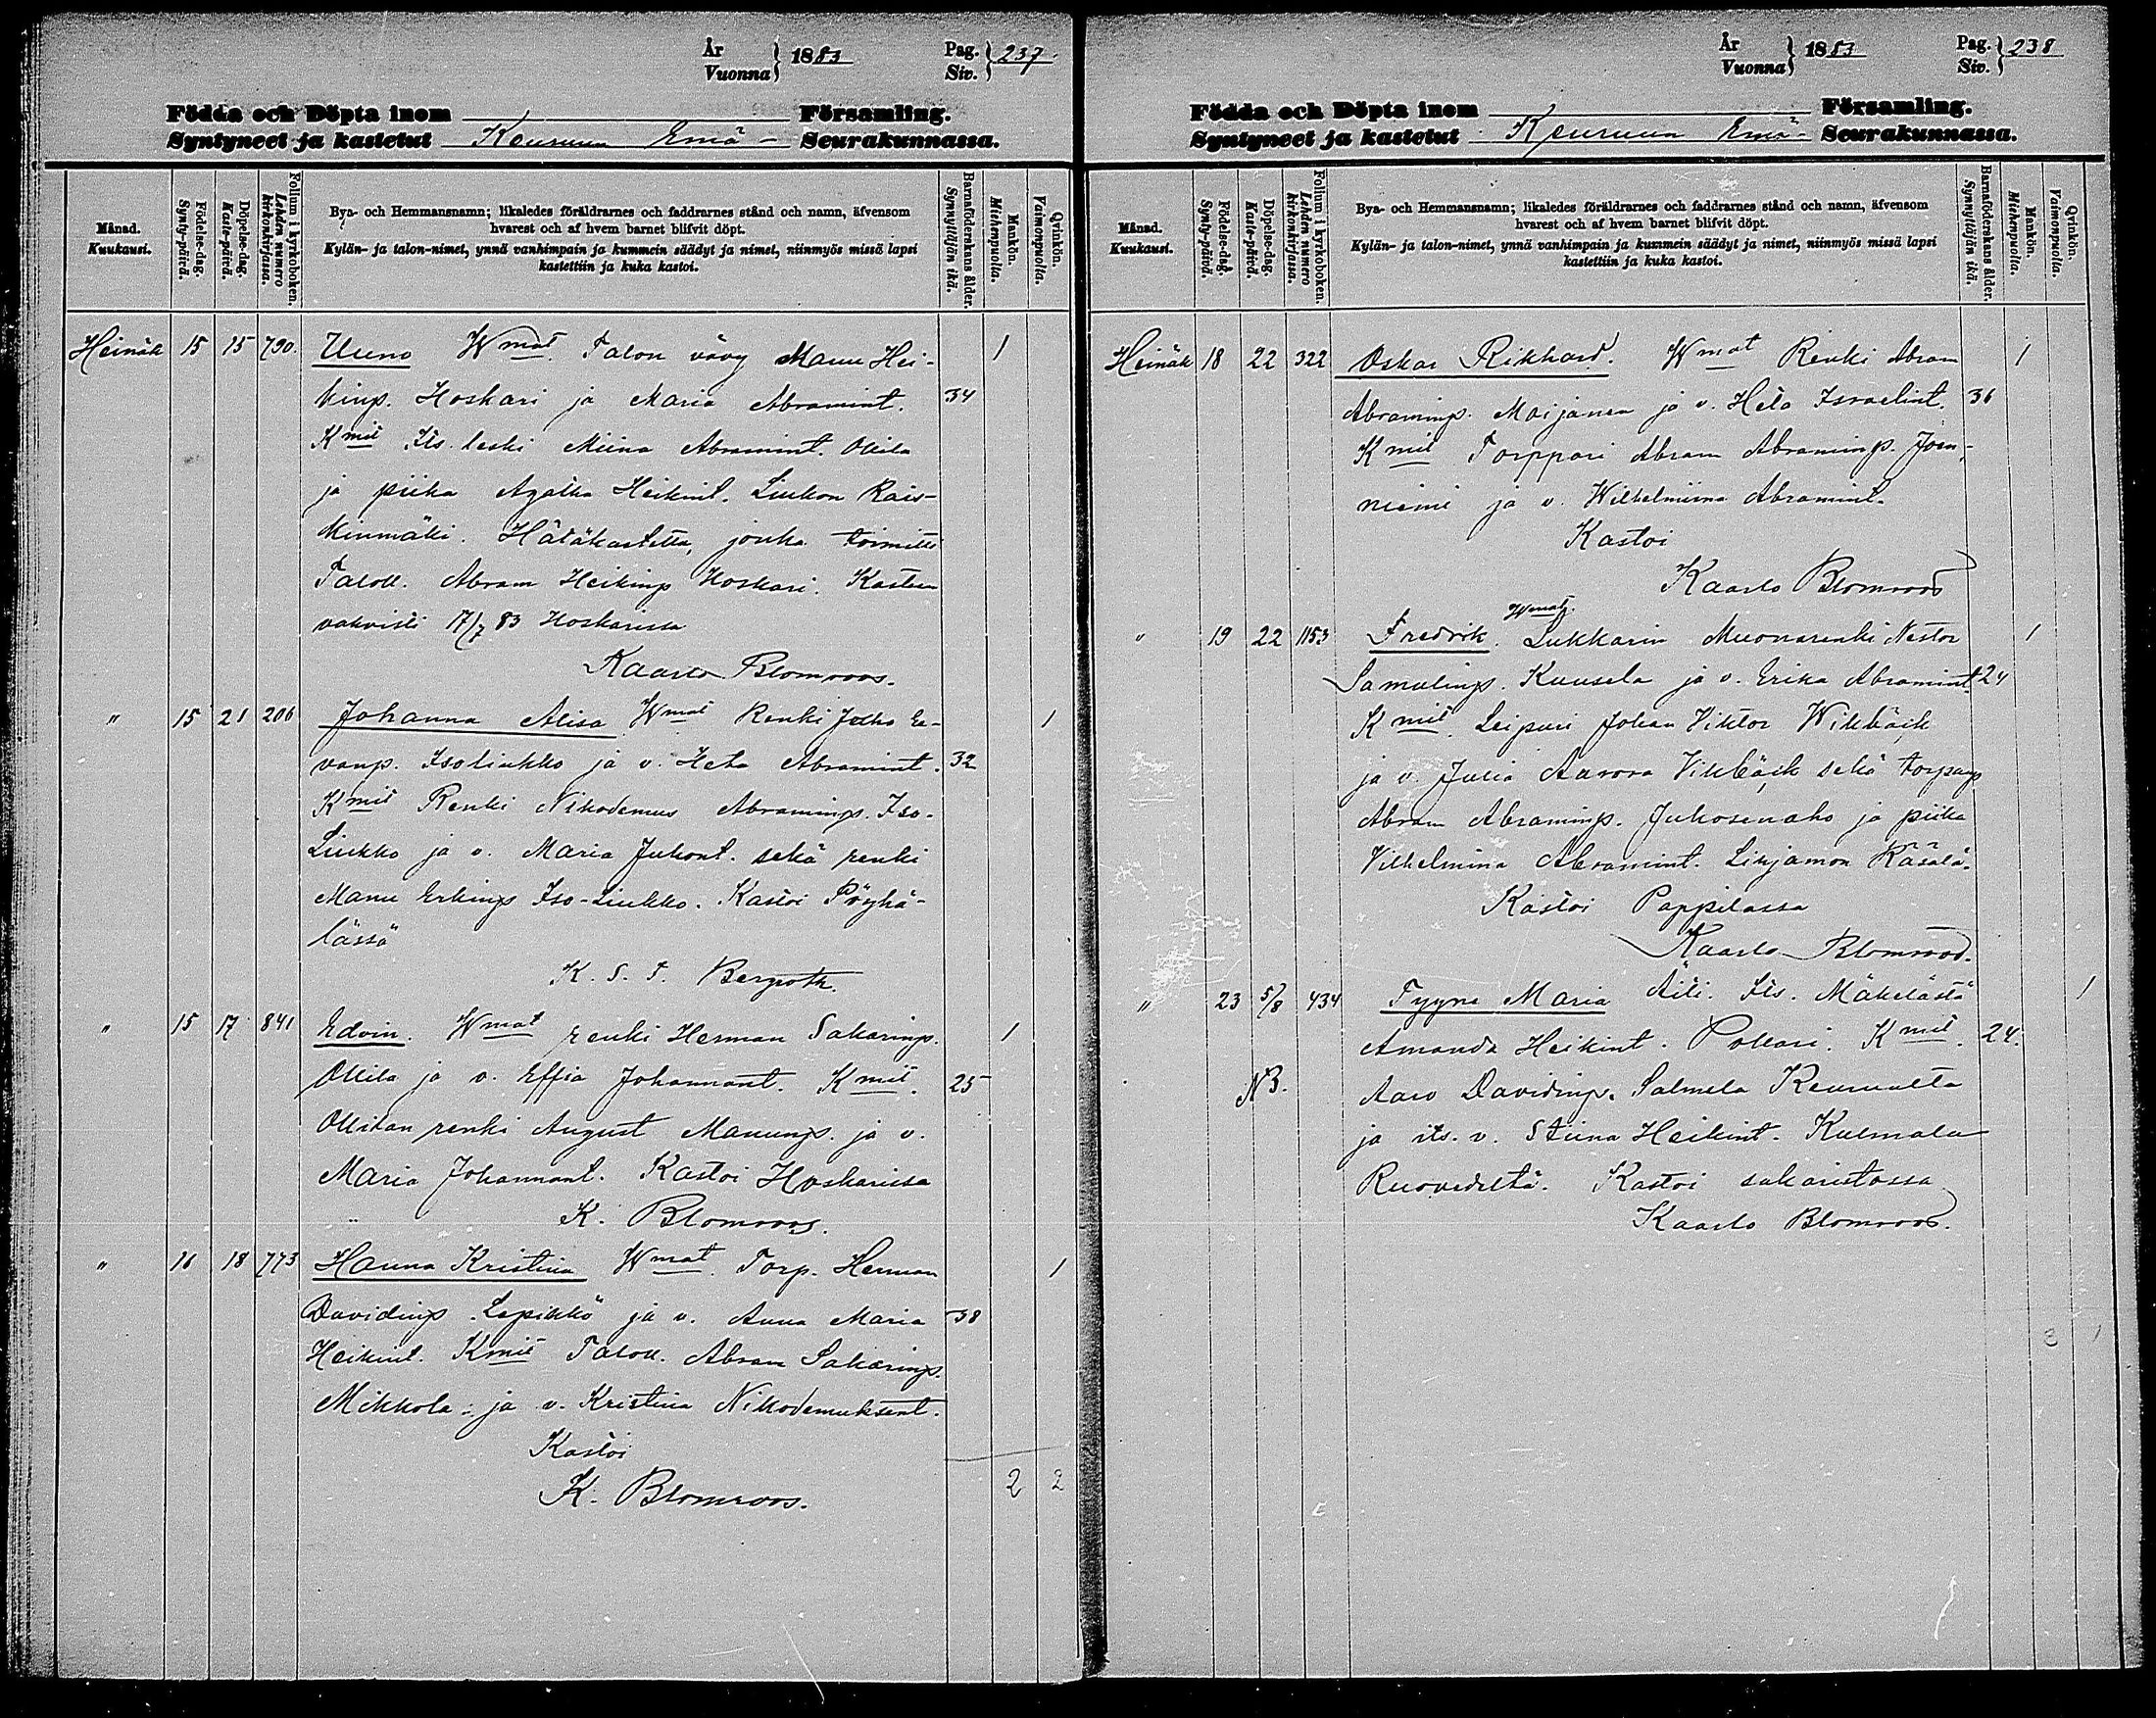 År
Vuonna } 1883
Pag.
Siv. } 237
Födda och Döpta inom Församling.
Syntyneet ja kastetut Keuruun Emä- Seurakunnassa.
Månad.
Kuukausi.
Födelse-dag.
Synty-päivä.
Döpelse-dag.
Kaste-päivä.
Folium i kyrkoboken.
Lehden numero
kirkonkirjassa.
Bya- och Hemmansnamn; likaledes föräldrarnes och faddrarnes stånd och namn, äfvensom
hvarest och af hvem barnet blifvit döpt.
Kylän- ja talon-nimet, ynnä vanhimpain ja kummein säädyt ja nimet, niinmyös missä lapsi
kastettiin ja kuka kastoi.
Barnaföderskans ålder.
Synnyttäjän ikä.
Mankön.
Miehenpuolia.
Qvinkön.
Vaimonpuolia.
Heinäk 15 15 790. Uuno Wmat. Talon vävy Manu Hei- 1
kinp. Hoskari ja Maria Abramint. 34
Kmit Its. leski Miina Abramint. Ollila
ja piika Agatha Heikint. Liukon Rais-
kinmäki. Hätäkastetta, jonka toimitti
Taloll. Abram Heikinp Hoskari. Kasteen
vahvisti 17/7 83 Hoskarissa
Kaarlo Blomroos.
" 15 21 206 Johanna Alisa Wmat Renki Jooho Ee- 1
vanp. Isoliukko ja v. Heta Abramint. 32
Kmit Renki Nikodemus Abraminp. Iso-
Liukko ja v. Maria Juhont. sekä renki
Manu Erkinp Iso-Liukko. Kastoi Pöyhö-
lässä
K. S. T. Bergroth.
" 15 17 841 Edvin. Wmat renki Herman Sakarinp. 1
Ollila ja v. Effia Johannant. Kmit. 25
Ollilan renki August Manunp. ja v.
Maria Johannant. Kastoi Hoskarissa
K. Blomroos.
" 16 18 773 Hanna Kristina Wmat. Torp. Herman 1
Davidinp. Lepikkö ja v. Anna Maria 38
Heikint. Kmit Taloll. Abram Sakarinp.
Mikkola ja v. Kristina Nikodemuksent.
Kastoi
K. Blomroos.
2 2
År
Vuonna } 1883
Pag.
Siv. } 238
Födda och Döpta inom Församling.
Syntyneet ja kastetut Keuruun Emä- Seurakunnassa.
Månad.
Kuukausi.
Födelse-dag.
Synty-päivä.
Döpelse-dag.
Kaste-päivä.
Folium i kyrkoboken.
Lehden numero
kirkonkirjassa.
Bya- och Hemmansnamn; likaledes föräldrarnes och faddrarnes stånd och namn, äfvensom
hvarest och af hvem barnet blifvit döpt.
Kylän- ja talon-nimet, ynnä vanhimpain ja kummein säädyt ja nimet, niinmyös missä lapsi
kastettiin ja kuka kastoi.
Barnaföderskans ålder.
Synnyttäjän ikä.
Mankön.
Miehenpuolia.
Qvinkön.
Vaimonpuolia.
Heinäk 18 22 322 Oskar Rikhard. Wmat Renki Abram 1
Abraminp. Maijanen ja v. Heta Israelint. 36
Kmit Torppari Abram Abraminp. Joen-
niemi ja v. Wilhelmiina Abramint.
Kastoi
Kaarlo Blomroos
" 19 22 1153 Fredrik. Wmat. Lukkarin Muonarenki Nestor 1
Samulinp. Kuusela ja v. Erika Abramint. 24
Kmit. Leipuri Johan Viktor Wikbäck
ja v. Julia Aurora Vikbäck sekä torpanp
Abram Abraminp. Juhosenaho ja piika
Vilhelmina Abramint. Linjamon Käsälä.
Kastoi Pappilassa
Kaarlo Blomroos.
" 23 5/8 434 Tyyne Maria Äiti. Its. Mäkelästä 1
Amanda Heikint. Pollari. Kmit. 24.
NB. Aaro Davidinp. Salmela Keuruulta
ja its. v. Stiina Heikint. Kulmala
Ruovedeltä. Kastoi sakaristossa
Kaarlo Blomroos.
3 1